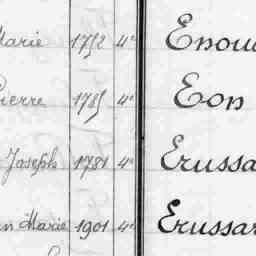 Marie 1752 4e Enou
Pierre 1785 4e Eon
Joseph 1781 4e Erussa
n Marie 1901 4e Erussar